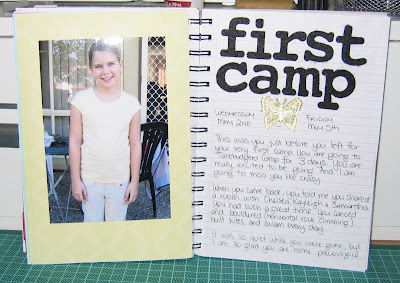 first
camp
Wednesday Friday
May 2nd May 5th
This was you just before you left for
your very first camp. You are going to
Camp for 3 days. You are
really excited to be going and I am
going to miss you like crazy.
When you came back, you told me you shared
a room with Chelsea, Kayleigh & Samantha.
You had such a great time. You canoed
and bouldered (horizontal rock climbing)
built kites and swam every day.
It was so quiet while you were gone, but
am so glad you are home precious girl.